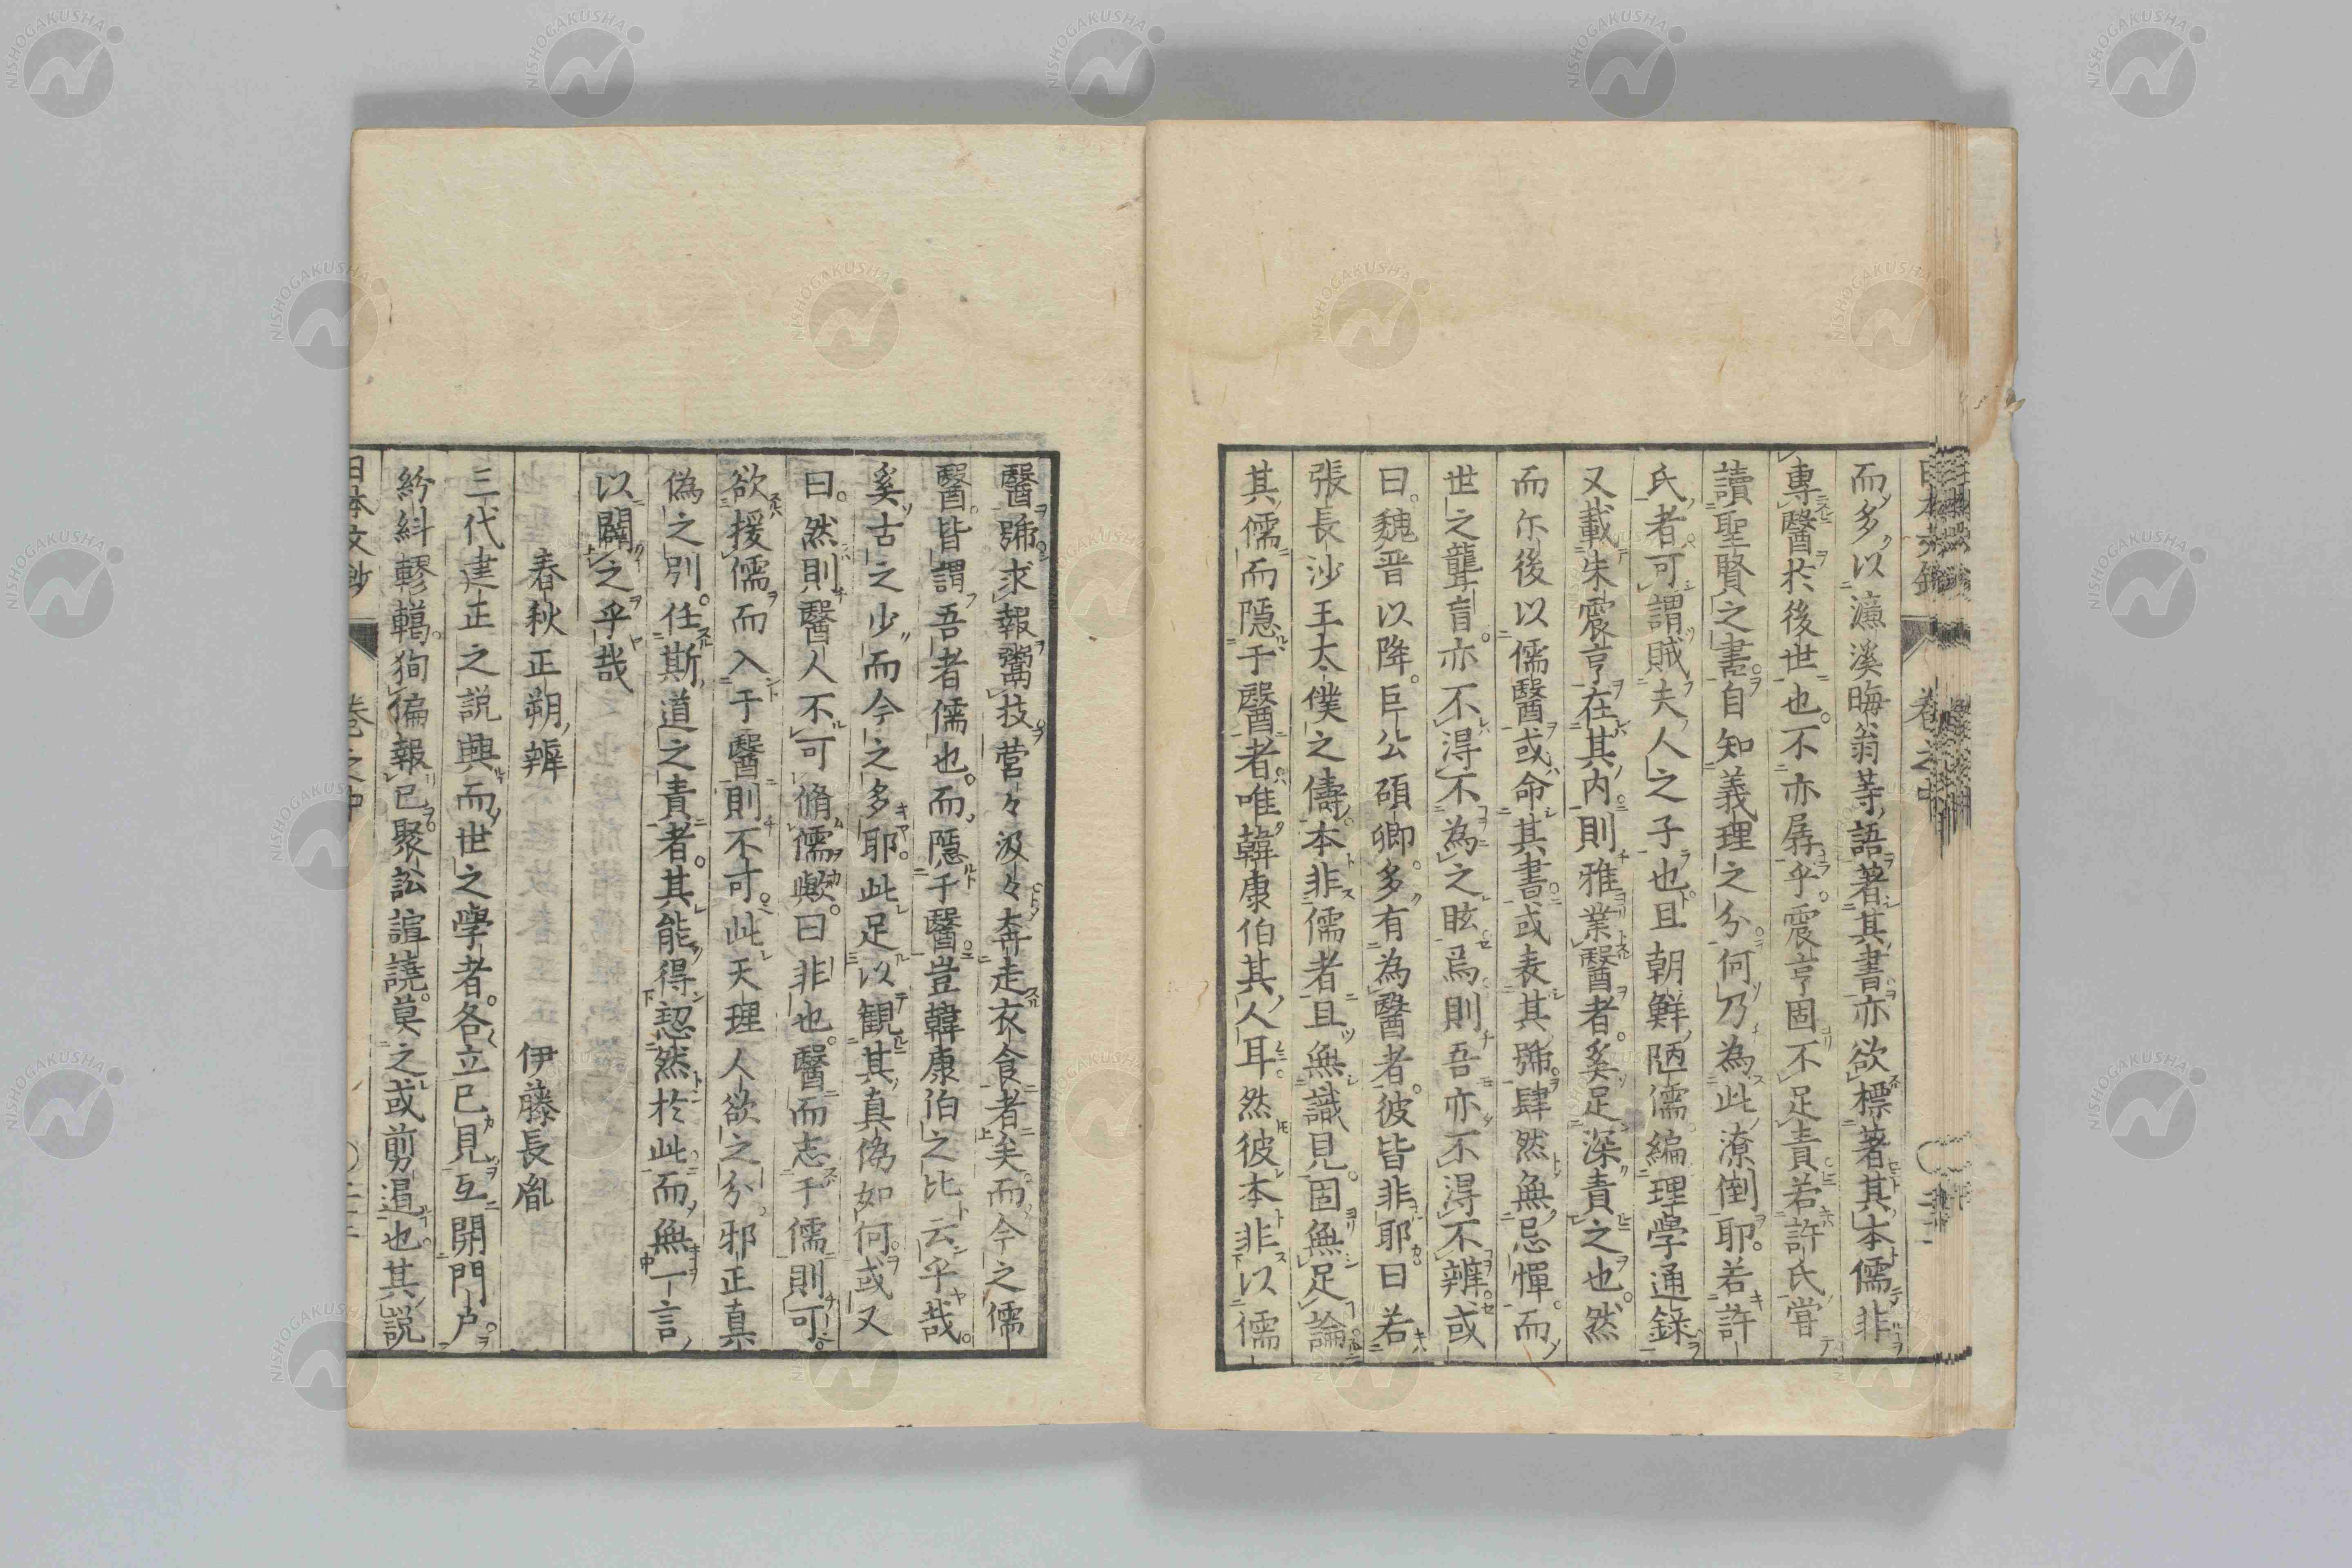 而多以濂溪晦翁等語著其書亦欲標著其本儒非
専醫於後世也。不亦孱乎。震亨固不足責若許氏嘗
讀聖賢之書。自知義理之分何乃為此潦倒耶。若許
氏者可謂賊夫人之子也且朝鮮陋儒編理學通錄
又載朱震亨在其内則雅業醫者。奚足深責之也。然
而尓後以儒醫或命其書。或表其號。肆然無忌憚。而
世之聾盲。亦不得不為之眩焉則吾亦不得不辨。或
曰。魏晋以降。巨公碩卿。多有為醫者。彼皆非耶曰若
張長沙王太僕之儔本非儒者且無識見。固無足論
其儒而隠于醫者。唯韓康伯其人耳。然彼本非以儒
醫號求報鬻技營々汲々奔走衣食者矣。而今之儒
醫。皆謂吾者儒也。而隠于醫豈韓康伯之比云乎哉。
奚古之少而今之多耶。此足以観其真偽如何。或又
曰。然則醫人不可脩儒歟。曰非也。醫而志于儒則可。
欲援儒而入于醫則不可。此天理人欲之分。邪正真
偽之別。任斯道之責者。其能得恝然於此而無一言
以闢之乎哉
春秋正朔辨　伊藤長胤
三代建正之説興而世之學者。各立己見互開門戸。
紛糾轇轕。狥偏報己。聚訟諠譊。莫之或剪遏也。其説
日本文鈔　卷之中